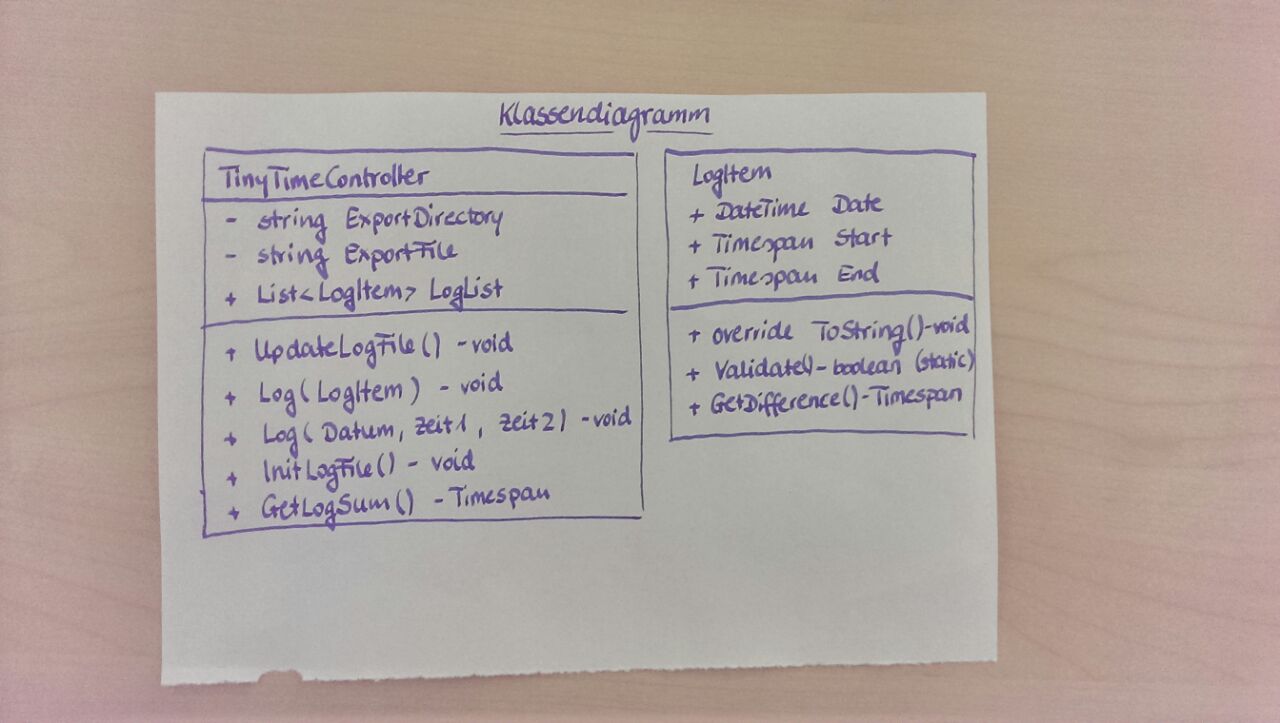 Klassendiagramm
TinyTimeController
- string ExportDirectory
- string ExportFile
+ List<LogItem> LogList
+ UpdateLogFile() - void
+ Log(LogItem) - void
+ Log(Datum, Zeit1, Zeit2) - void
+ InitLogFile() - void
+ GetLogSum() - Timespan
LogItem
+ DateTime Date
+ Timespan Start
+ Timespan End
+ override ToString()-void
+ Validate()-boolean (static)
+ GetDifference()-Timespan